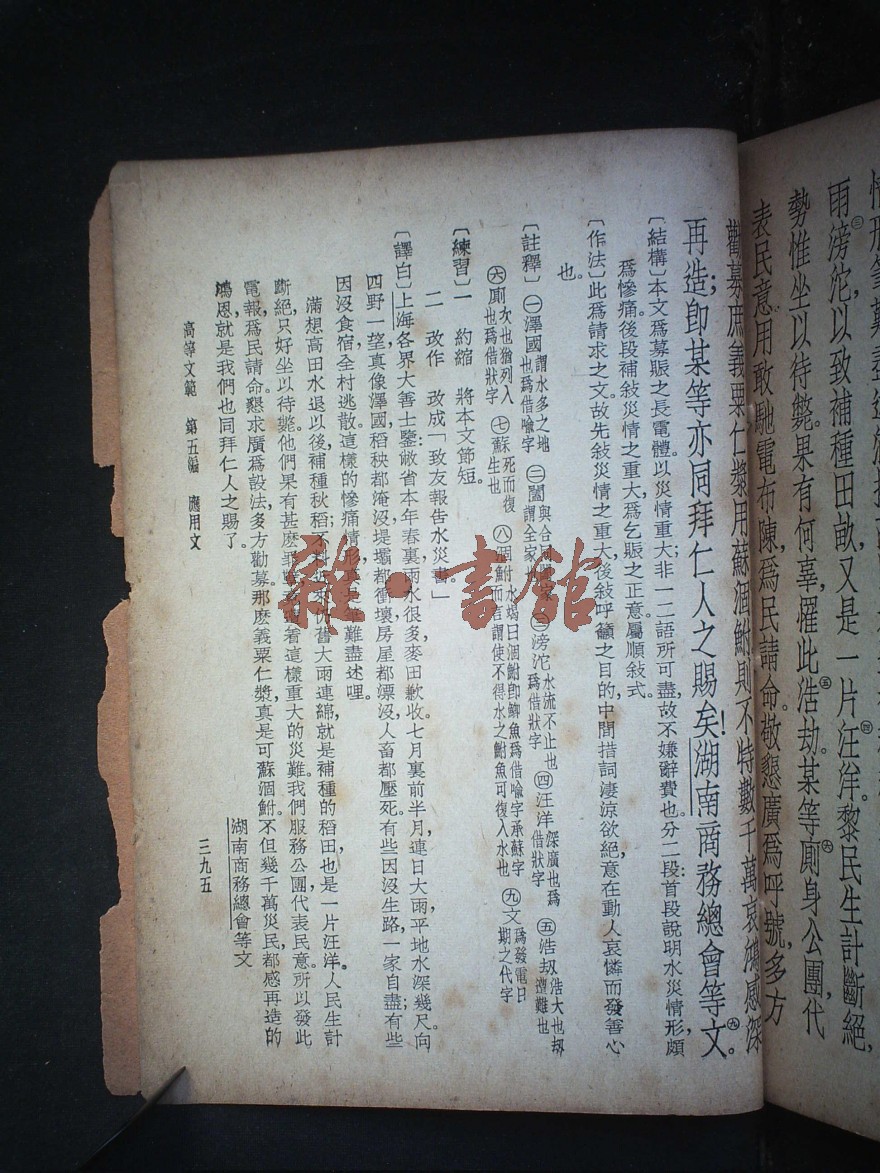 雨滂沱，㊂以致補種田畝，又是一片汪洋。㊃黎民生計斷絕，
勢惟坐以待斃。果有何辜，罹此浩劫。㊄某等廁㊅身公團，代
表民意，用敢馳電布陳，爲民請命，敬懇廣爲呼號，多方
勸募，庶義粟仁漿，用蘇涸鮒，則不特數千萬哀鴻，感深
再造；卽某等亦同拜仁人之賜矣！湖南商務總會等文㊈。
〔結構〕本文爲募賑之長電體。以災情重大，非一二語所可盡，故不嫌辭費也。分二段：首段說明水災情形，頗
爲慘痛。後段補敍災情之重大，爲乞賑之正意。屬順敍式。
〔作法〕此爲請求之文，故先敍災情之重大，後敍呼籲之目的，中間措詞淒涼欲絕，意在動人哀憐而發善心
也。
〔註釋〕㊀澤國謂水多之地也爲借喩字 ㊁闔與合同謂全家 ㊂滂沱水流不止也爲借狀字 ㊃汪洋深廣也爲借狀字 ㊄浩刼浩大也刼遭難也
㊅廁次也猶列入也爲借狀字 ㊆蘇死而復生也 ㊇涸鮒水竭曰涸鮒卽鯽魚爲借喩字承蘇字而直謂使不得水之鮒魚可復入水也 ㊈文爲發電日期之代字
〔練習〕一 約縮 將本文節短。
二 改作 改成「致友報告水災書」
〔譯白〕上海各界大善士鑒：敝省本年春裏雨水很多，麥田歉收。七月裏前半月，連日大雨，平地水深幾尺。向
四野一望，真像澤國，稻秧都淹沒，堤壩都衝壞，房屋都漂沒，人畜都壓死。有些因沒生路，一家自盡；有些
因沒食宿，全村逃散。這樣的慘痛情形，難盡述哩。
滿想高田水退以後，補種秋稻；舊大雨連綿，就是補種的稻田，也是一片汪洋。人民生計
斷絕，只好坐以待斃。他們果有甚麽罪，着這樣重大的災難。我們服務公團，代表民意，所以發此
電報，爲民請命，懇求廣爲設法，多方勸募。那麽義粟仁漿，真是可蘇涸鮒，不但幾千萬災民，都感再造的
鴻恩，就是我們也同拜仁人之賜了。
湖南商務總會等文
高等文範 第五編 應用文
三九五
雜·書館